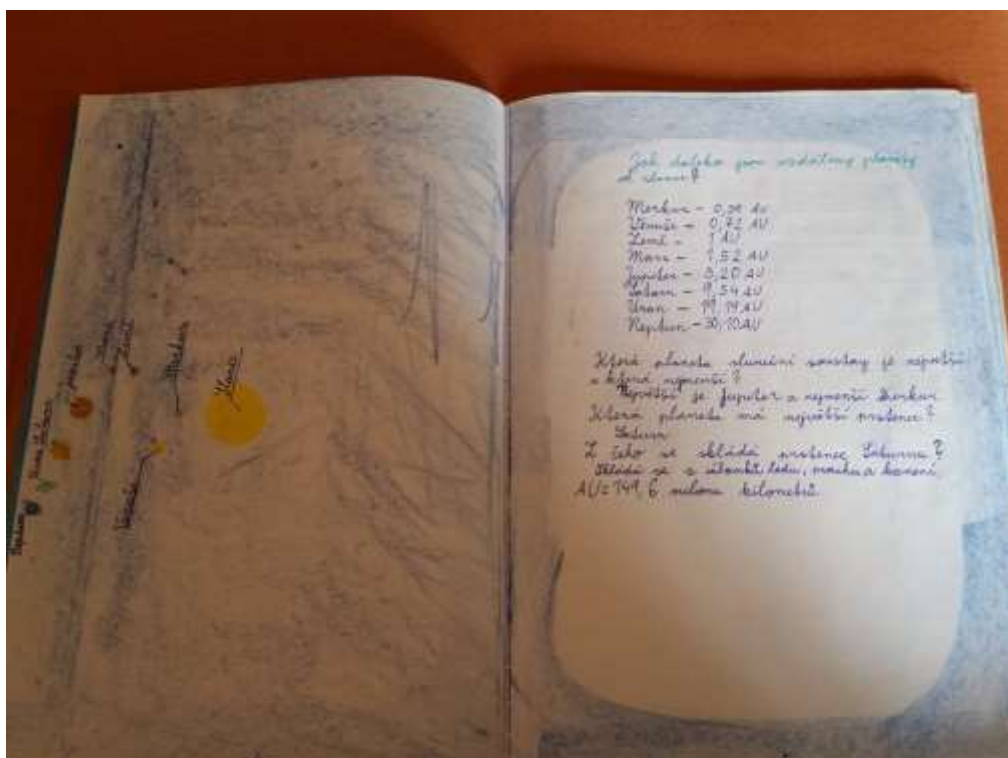 Neptun
Uran
Saturn
Jupiter
Mars
Země
Venuše
Merkur
Slunce
Jak daleko jsou vzdáleny planety
od slunce?
Merkur - 0,39 AU
Venuše - 0,72 AU
Země - 1 AU
Mars - 1,52 AU
Jupiter - 5,20 AU
Saturn - 9,54 AU
Uran - 19,19 AU
Neptun - 30,10 AU
Která planeta sluneční soustavy je největší
a která nejmenší?
Největší je Jupiter a nejmenší Merkur
Která planeta má největší prstence?
Saturn
Z čeho se skládá prstenec Saturnu?
Skládá se z úlomků ledu, prachu a kamení.
AU = 149,6 kilometrů